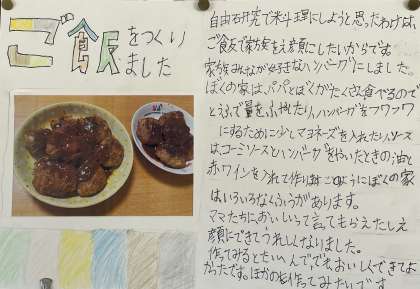 ご飯をつくり
ました
自由研究で米斗理にしようと思ったわけは、
ご食反で家族をえ顔にしたいからです。
家族みんなが好きなハンバーグにしました。
ぼくの家は、パパとぼくがたくさん食べるので
とうふで量をふやしたり、ハンバーグをフワフワ
にするために少しマヨネーズを入れたり、ソース
はコーミソースとハンバーグをやいたときの油と
赤ワインを入れて作ります。このようにぼくの家
はいろいろなくふうがあります。
ママたちにおいしいって言ってもらえたしえ
顔にできてうれしくなりました。
作ってみるとたいへんで、でもおいしくできてよ
かったです。ほかのも作ってみたいです